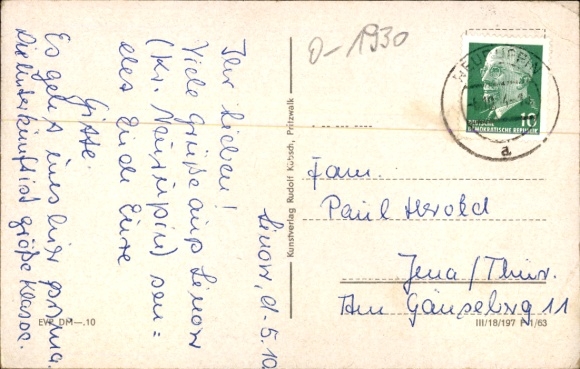 Lenow, d. 5.10
Ihr Lieben!
Viele Grüße aus Lenow
(Kr. Neuruppin) sen=
det Euch Eure
Gitte.
Es geht uns hier prima.
Die Unterkunft ist große Klasse.
EVP DM —.10
Kunstverlag Rudolf Kübsch, Pritzwalk
0-1930
NEURUPPIN
a
10
DEUTSCHE
DEMOKRATISCHE REPUBLIK
Fam.
Paul Herold
Jena / Thür.
Am Gänseberg 11
III/18/197 P 1/63